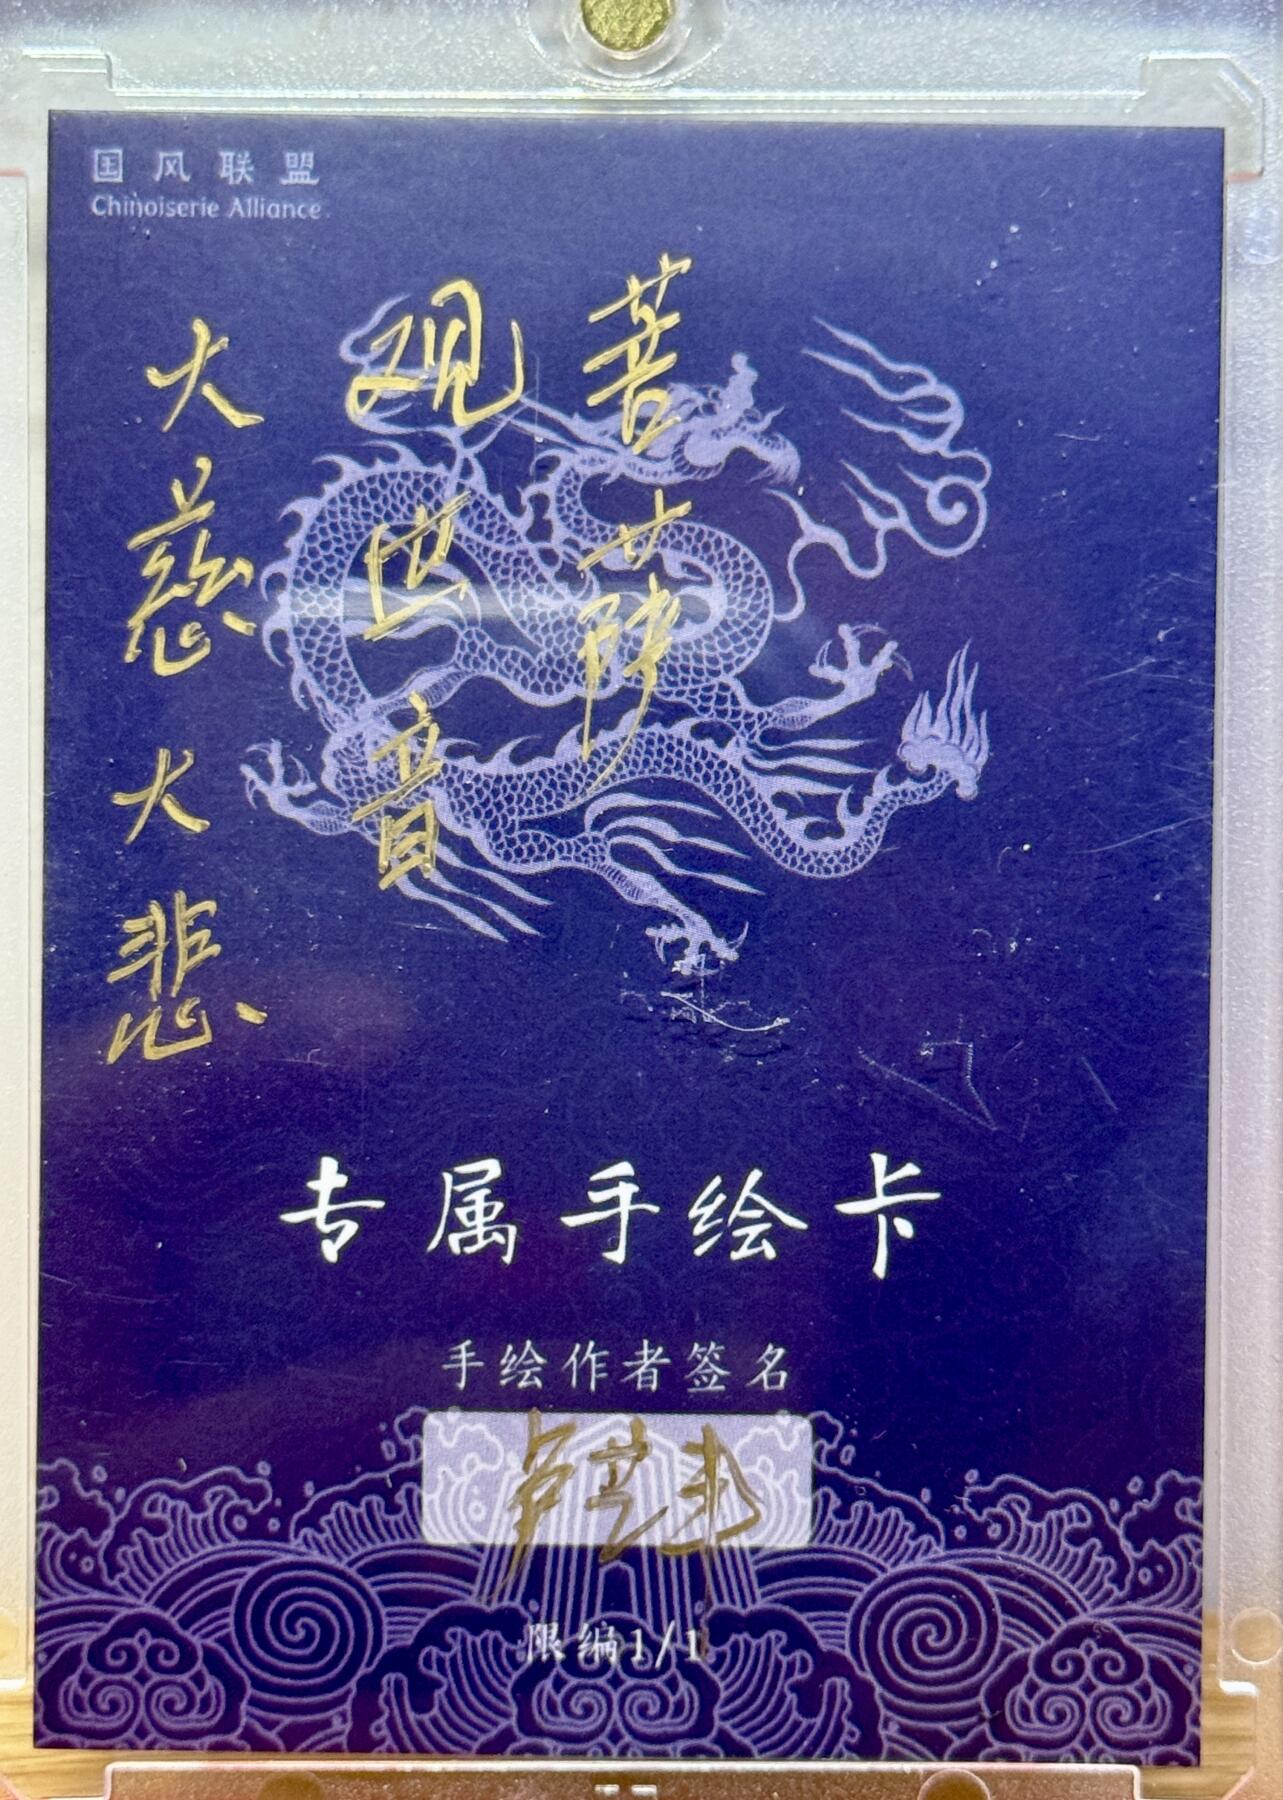 国风联盟
Chinoiserie Alliance
大慈大悲
观世音
菩萨
专属手绘卡
手绘作者签名
限编1/1